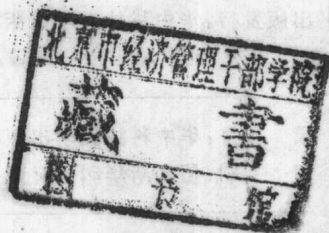 北京市经济管理干部学院
藏 書
图 书 馆